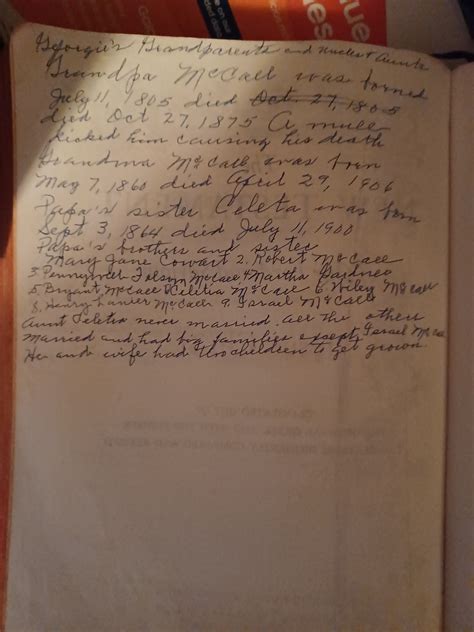 ue
es
Georgie's Grandparents and uncles + Aunts
Grandpa McCall was borned
July 11, 1805 died Oct 27, 1805
died Oct 27, 1875 A mule
kicked him causing his death
Grandma McCall was born
May 7, 1860 died April 29, 1906
Papa's sister Celeta was born
Sept 3, 1864 died July 11, 1900
Papa's brothers and sister
Mary Jane Cowart 2. Robert McCall
3. Folsom McCall 4 Martha
5. Bryant McCall McCall 6 Wiley McCall
8. Henry Lanier McCall 9. Israel McCall
Aunt Celeta never married. All the others
married and had big families except Israel McCall
He and wife had two children to get grown.